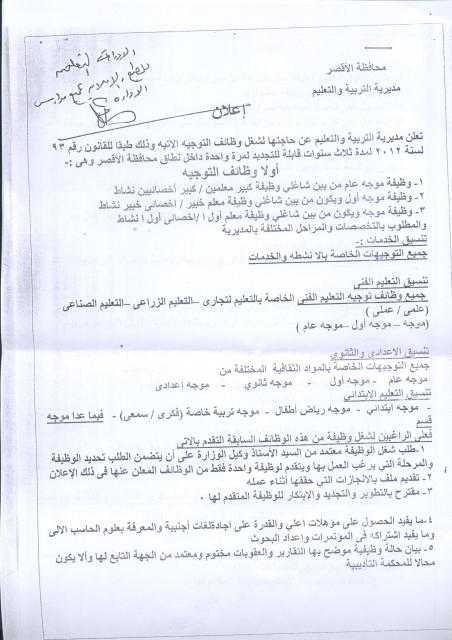 محافظة الأقصر
مديرية التربية والتعليم
الادارات التعليمية
الادارة
إعلان
تعلن مديرية التربية والتعليم عن حاجتها لشغل وظائف التوجيه الاتيه وذلك طبقا للقانون رقم ٩٣
لسنة ٢٠١٢ لمدة ثلاث سنوات قابلة للتجديد لمرة واحدة داخل نطاق محافظة الاقصر وهى :-
أولا وظائف التوجيه
١- وظيفة موجه عام من بين شاغلي وظيفة كبير معلمين / كبير أخصائيين نشاط
٢- وظيفة موجه أول ويكون من بين شاغلي وظيفة معلم خبير / اخصائى خبير نشاط
٣- وظيفة موجه ويكون من بين شاغلي وظيفة معلم أول ا / إخصائى أول ا نشاط
والمطلوب بالتخصصات والمراحل المختلفة بالمديرية
تنسيق الخدمات :-
جميع التوجيهات الخاصة بالا نشطه والخدمات
تنسيق التعليم الفنى
جميع وظائف توجيه التعليم الفنى الخاصة بالتعليم لتجارى –التعليم الزراعى –التعليم الصناعى
(علمى / عملى )
(موجه – موجه أول –موجه عام )
تنسيق الاعدادى والثانوى
جميع التوجيهات الخاصة بالمواد الثقافية المختلفة من
موجه عام - موجه أول - موجه ثانوي - موجه اعدادى
تنسيق التعليم الابتدائي
- موجه ابتدائي - موجه رياض أطفال - موجه تربية خاصة (فكرى / سمعى) - فيما عدا موجه
قسم
فعلى الراغبين لشغل وظيفة من هذه الوظائف السابقة التقدم بالاتى
١-طلب شغل الوظيفة معتمد من السيد الأستاذ وكيل الوزارة على أن يتضمن الطلب تحديد الوظيفة
والمرحلة التي يرغب العمل بها ويتقدم لوظيفة واحدة فقط من الوظائف المعلن عنها فى ذلك الإعلان
٢- تقديم ملف بالانجازات التي حققها أثناء عمله
٣- مقترح بالتطوير والتجديد والابتكار للوظيفة المتقدم لها .
٤-ما يفيد الحصول على مؤهلات اعلي والقدرة على اجادةلغات أجنبية والمعرفة بعلوم الحاسب الالى
وما يفيد اشتراكه فى المؤتمرات وإعداد البحوث
٥- بيان حالة وظيفية موضح بها التقارير والعقوبات مختوم ومعتمد من الجهة التابع لها وألا يكون
محالا للمحكمة التأديبية